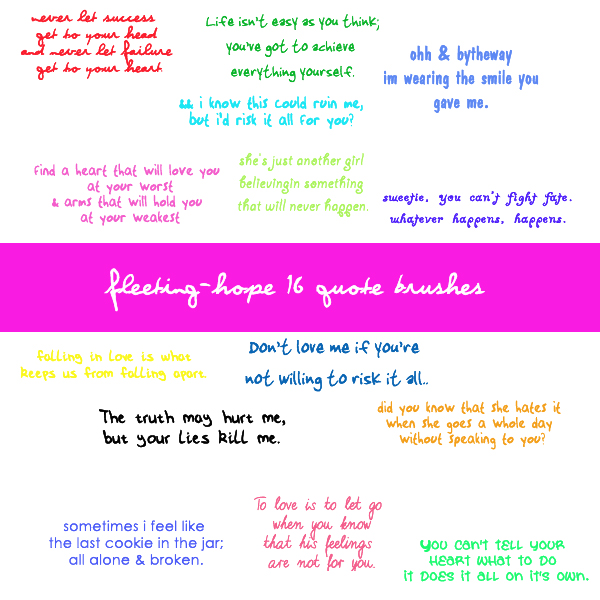 never let success
get to your head
and never let failure
get to your heart.
Life isn't easy as you think;
you've got to achieve
everything yourself.
ohh & bytheway
im wearing the smile you
gave me.
&& i know this could ruin me,
but i'd risk it all for you?
find a heart that will love you
at your worst
& arms that will hold you
at your weakest
she's just another girl
believingin something
that will never happen.
sweetie, you can't fight fate.
whatever happens, happens.
fleeting-hope 16 quote brushes
falling in love is what
keeps us from falling apart.
Don't love me if you're
not willing to risk it all..
The truth may hurt me,
but your lies kill me.
did you know that she hates it
when she goes a whole day
without speaking to you?
sometimes i feel like
the last cookie in the jar;
all alone & broken.
To love is to let go
when you know
that his feelings
are not for you.
You can't tell your
heart what to do
it does it all on it's own.